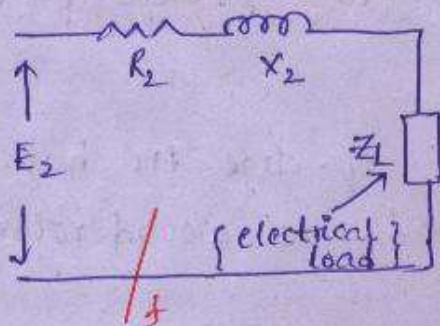 R₂ X₂
E₂
Z_L
{electrical
load}
f